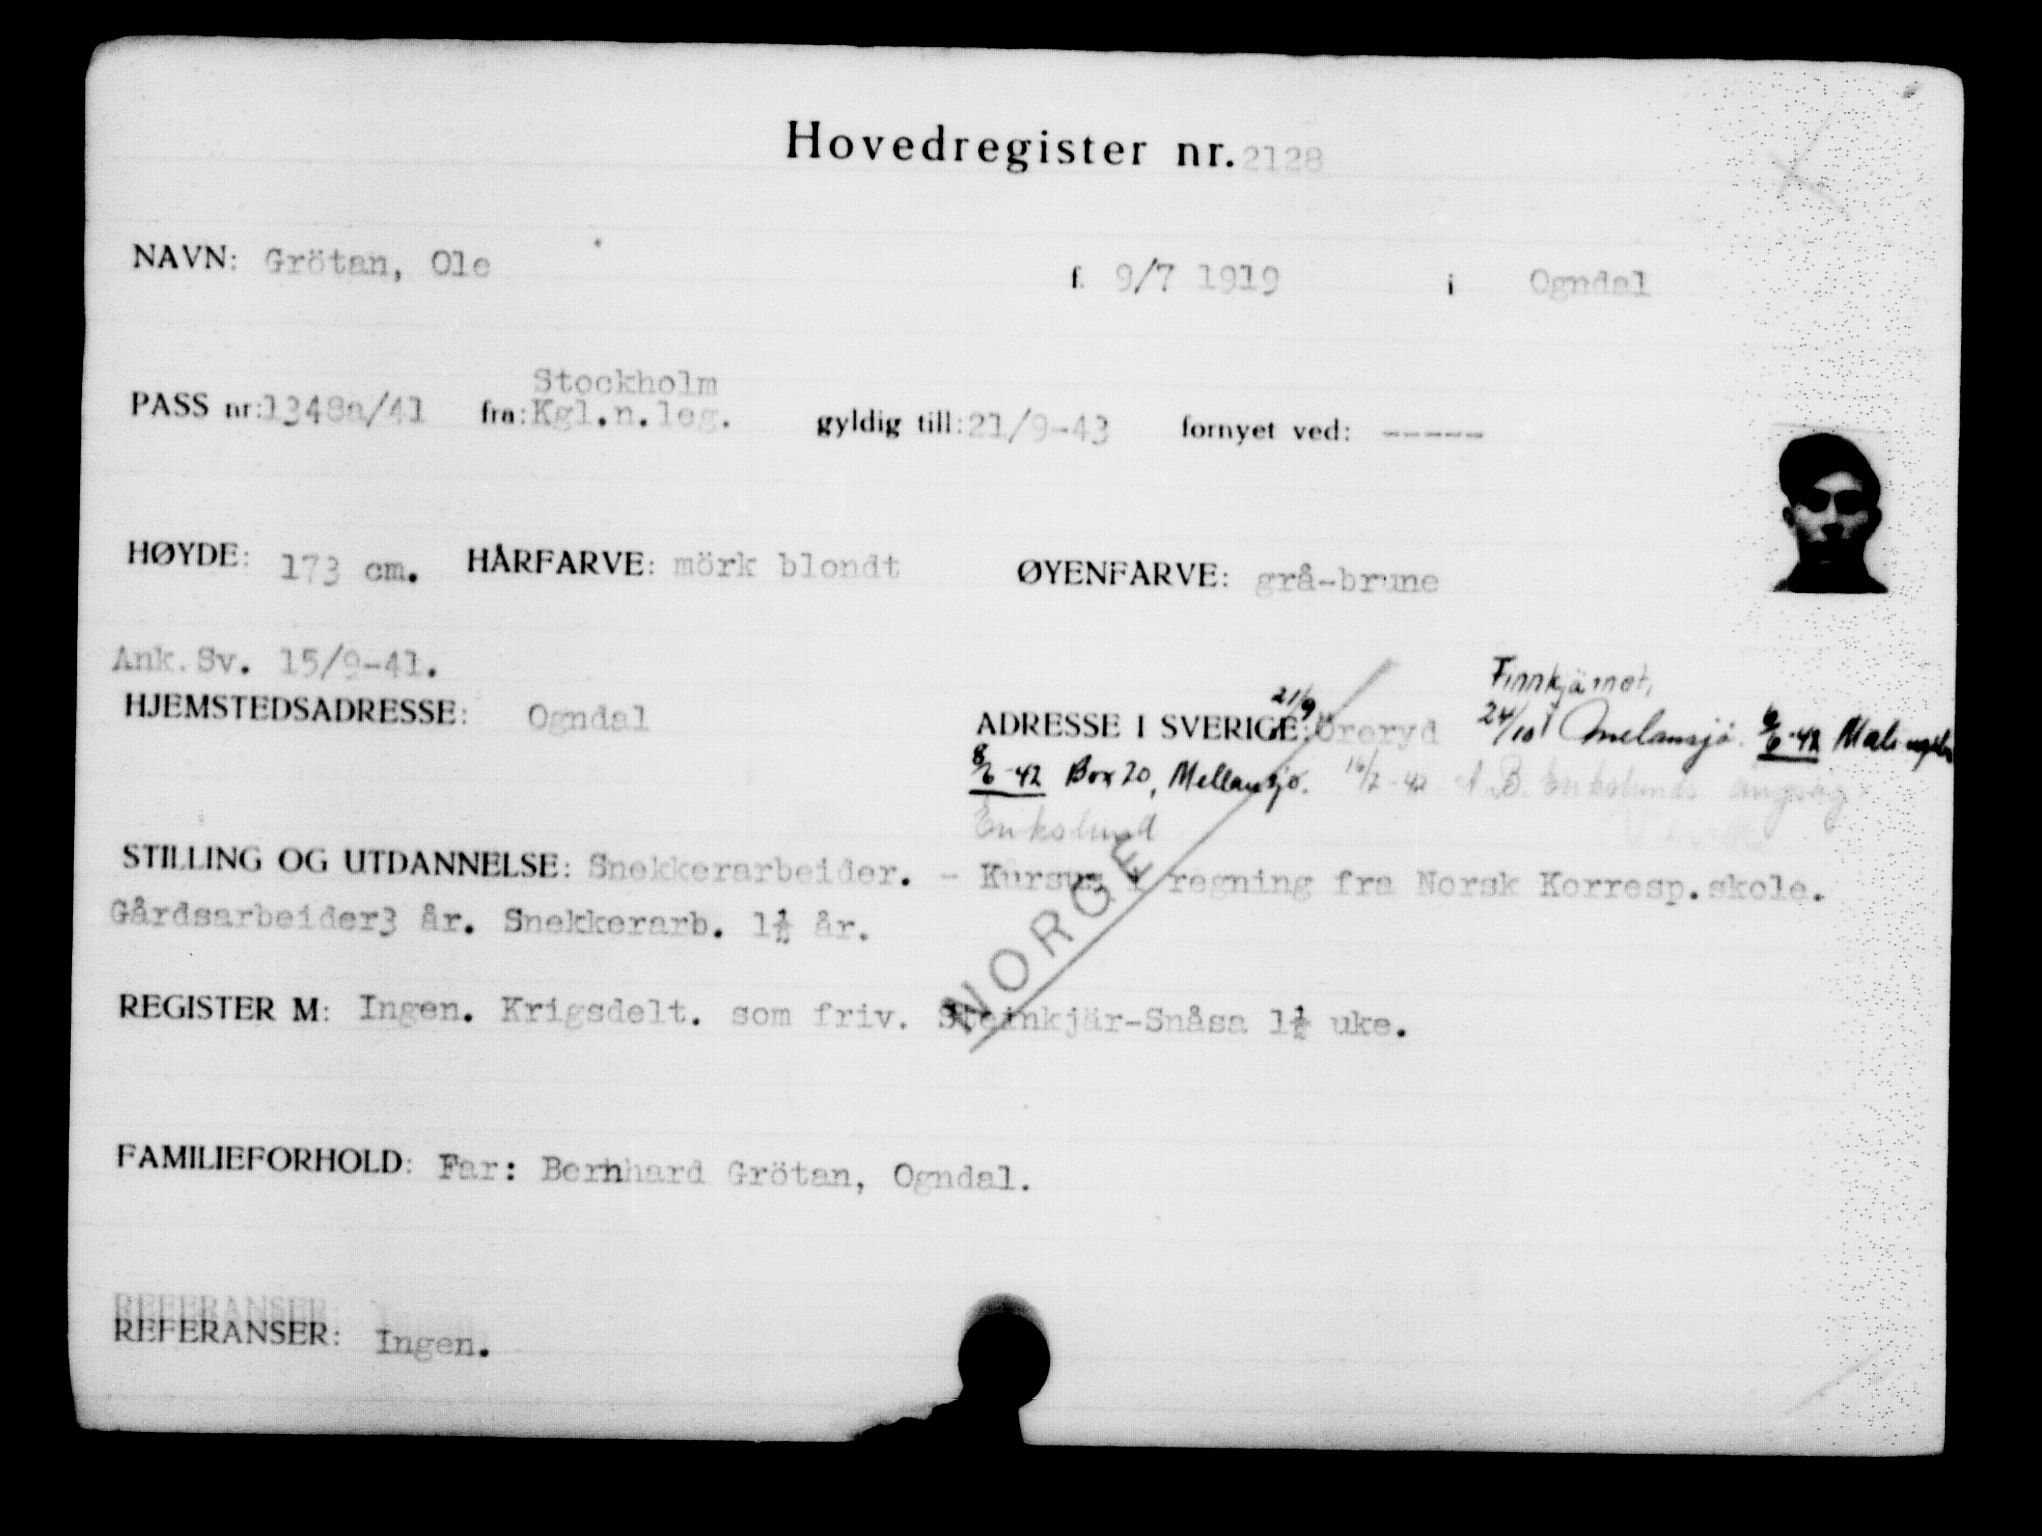 Hovedregister nr. 2128
NAVN: Grötan, Ole f. 9/7 1919 i Ogndal
Stockholm
PASS nr: 1348a/41 fra: Kgl.n.leg. gyldig till: 21/9-43 fornyet ved: -----
HØYDE: 173 cm. HÅRFARVE: mörk blondt ØYENFARVE: grå-brune
Ank. Sv. 15/9-41.
Finnkjärnet,
HJEMSTEDSADRESSE: Ogndal ADRESSE I SVERIGE: 21/9 Öreryd 24/10
8/6-42 Box 20, Mellansjö. 16/7-42 A.B. Erikslunds ångsåg
Erikslund
STILLING OG UTDANNELSE: Snekkerarbeider. - Kursus i regning fra Norsk Korresp.skole.
Gårdsarbeider3 år. Snekkerarb. 1½ år.
NORGE
REGISTER M: Ingen. Krigsdelt. som friv. Steinkjär-Snåsa 1½ uke.
FAMILIEFORHOLD: Far: Bernhard Grötan, Ogndal.
REFERANSER:
REFERANSER: Ingen.